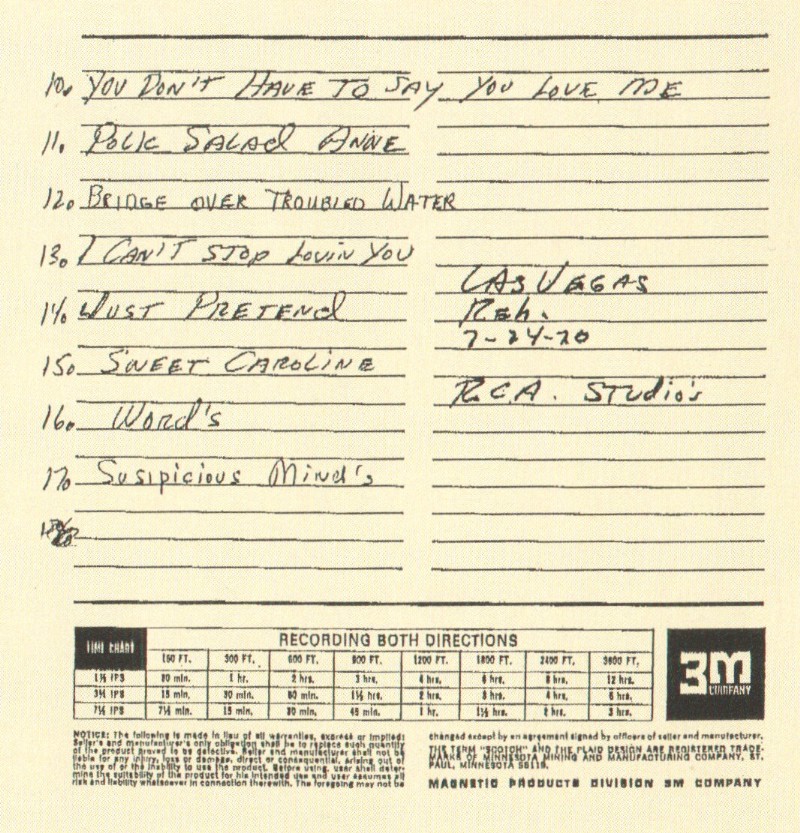 10. YOU DON'T HAVE TO SAY YOU LOVE ME
11. POLK SALAD ANNE
12. BRIDGE OVER TROUBLED WATER
13. I CAN'T STOP LOVIN YOU
14. JUST PRETEND
15. SWEET CAROLINE
16. WORD'S
17. SUSPICIOUS MIND'S
LAS VEGAS
Reh.
7-24-70
R.C.A. STUDIO'S
TIME CHART
RECORDING BOTH DIRECTIONS
150 FT. 300 FT. 600 FT. 900 FT. 1200 FT. 1800 FT. 2400 FT. 3600 FT.
1⅞ IPS 30 min. 1 hr. 2 hrs. 3 hrs. 4 hrs. 6 hrs. 8 hrs. 12 hrs.
3¾ IPS 15 min. 30 min. 60 min. 1½ hrs. 2 hrs. 3 hrs. 4 hrs. 6 hrs.
7½ IPS 7½ min. 15 min. 30 min. 45 min. 1 hr. 1½ hrs. 2 hrs. 3 hrs.
3M
COMPANY
NOTICE: The following is made in lieu of all warranties, express or implied:
Seller's and manufacturer's only obligation shall be to replace such quantity
of the product proved to be defective. Seller and manufacturer shall not be
liable for any injury, loss or damage, direct or consequential, arising out of
the use of or the inability to use the product. Before using, user shall deter-
mine the suitability of the product for his intended use and user assumes all
risk and liability whatsoever in connection therewith. The foregoing may not be
changed except by an agreement signed by officers of seller and manufacturer.
THE TERM "SCOTCH" AND THE PLAID DESIGN ARE REGISTERED TRADE-
MARKS OF MINNESOTA MINING AND MANUFACTURING COMPANY, ST.
PAUL, MINNESOTA 55119.
MAGNETIC PRODUCTS DIVISION 3M COMPANY